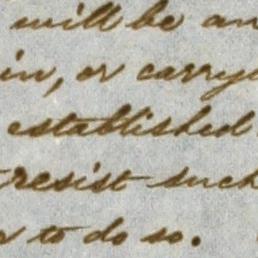 will be an
in, or carry
established
resist such
to do so.